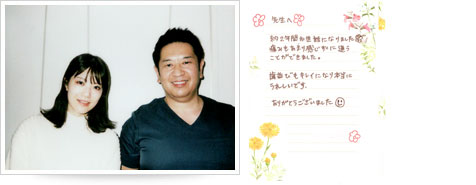 先生へ
約2年間お世話になりました
痛みもあまり感じずに通う
ことができました。
歯並びもキレイになり本当に
うれしいです。
ありがとうございました